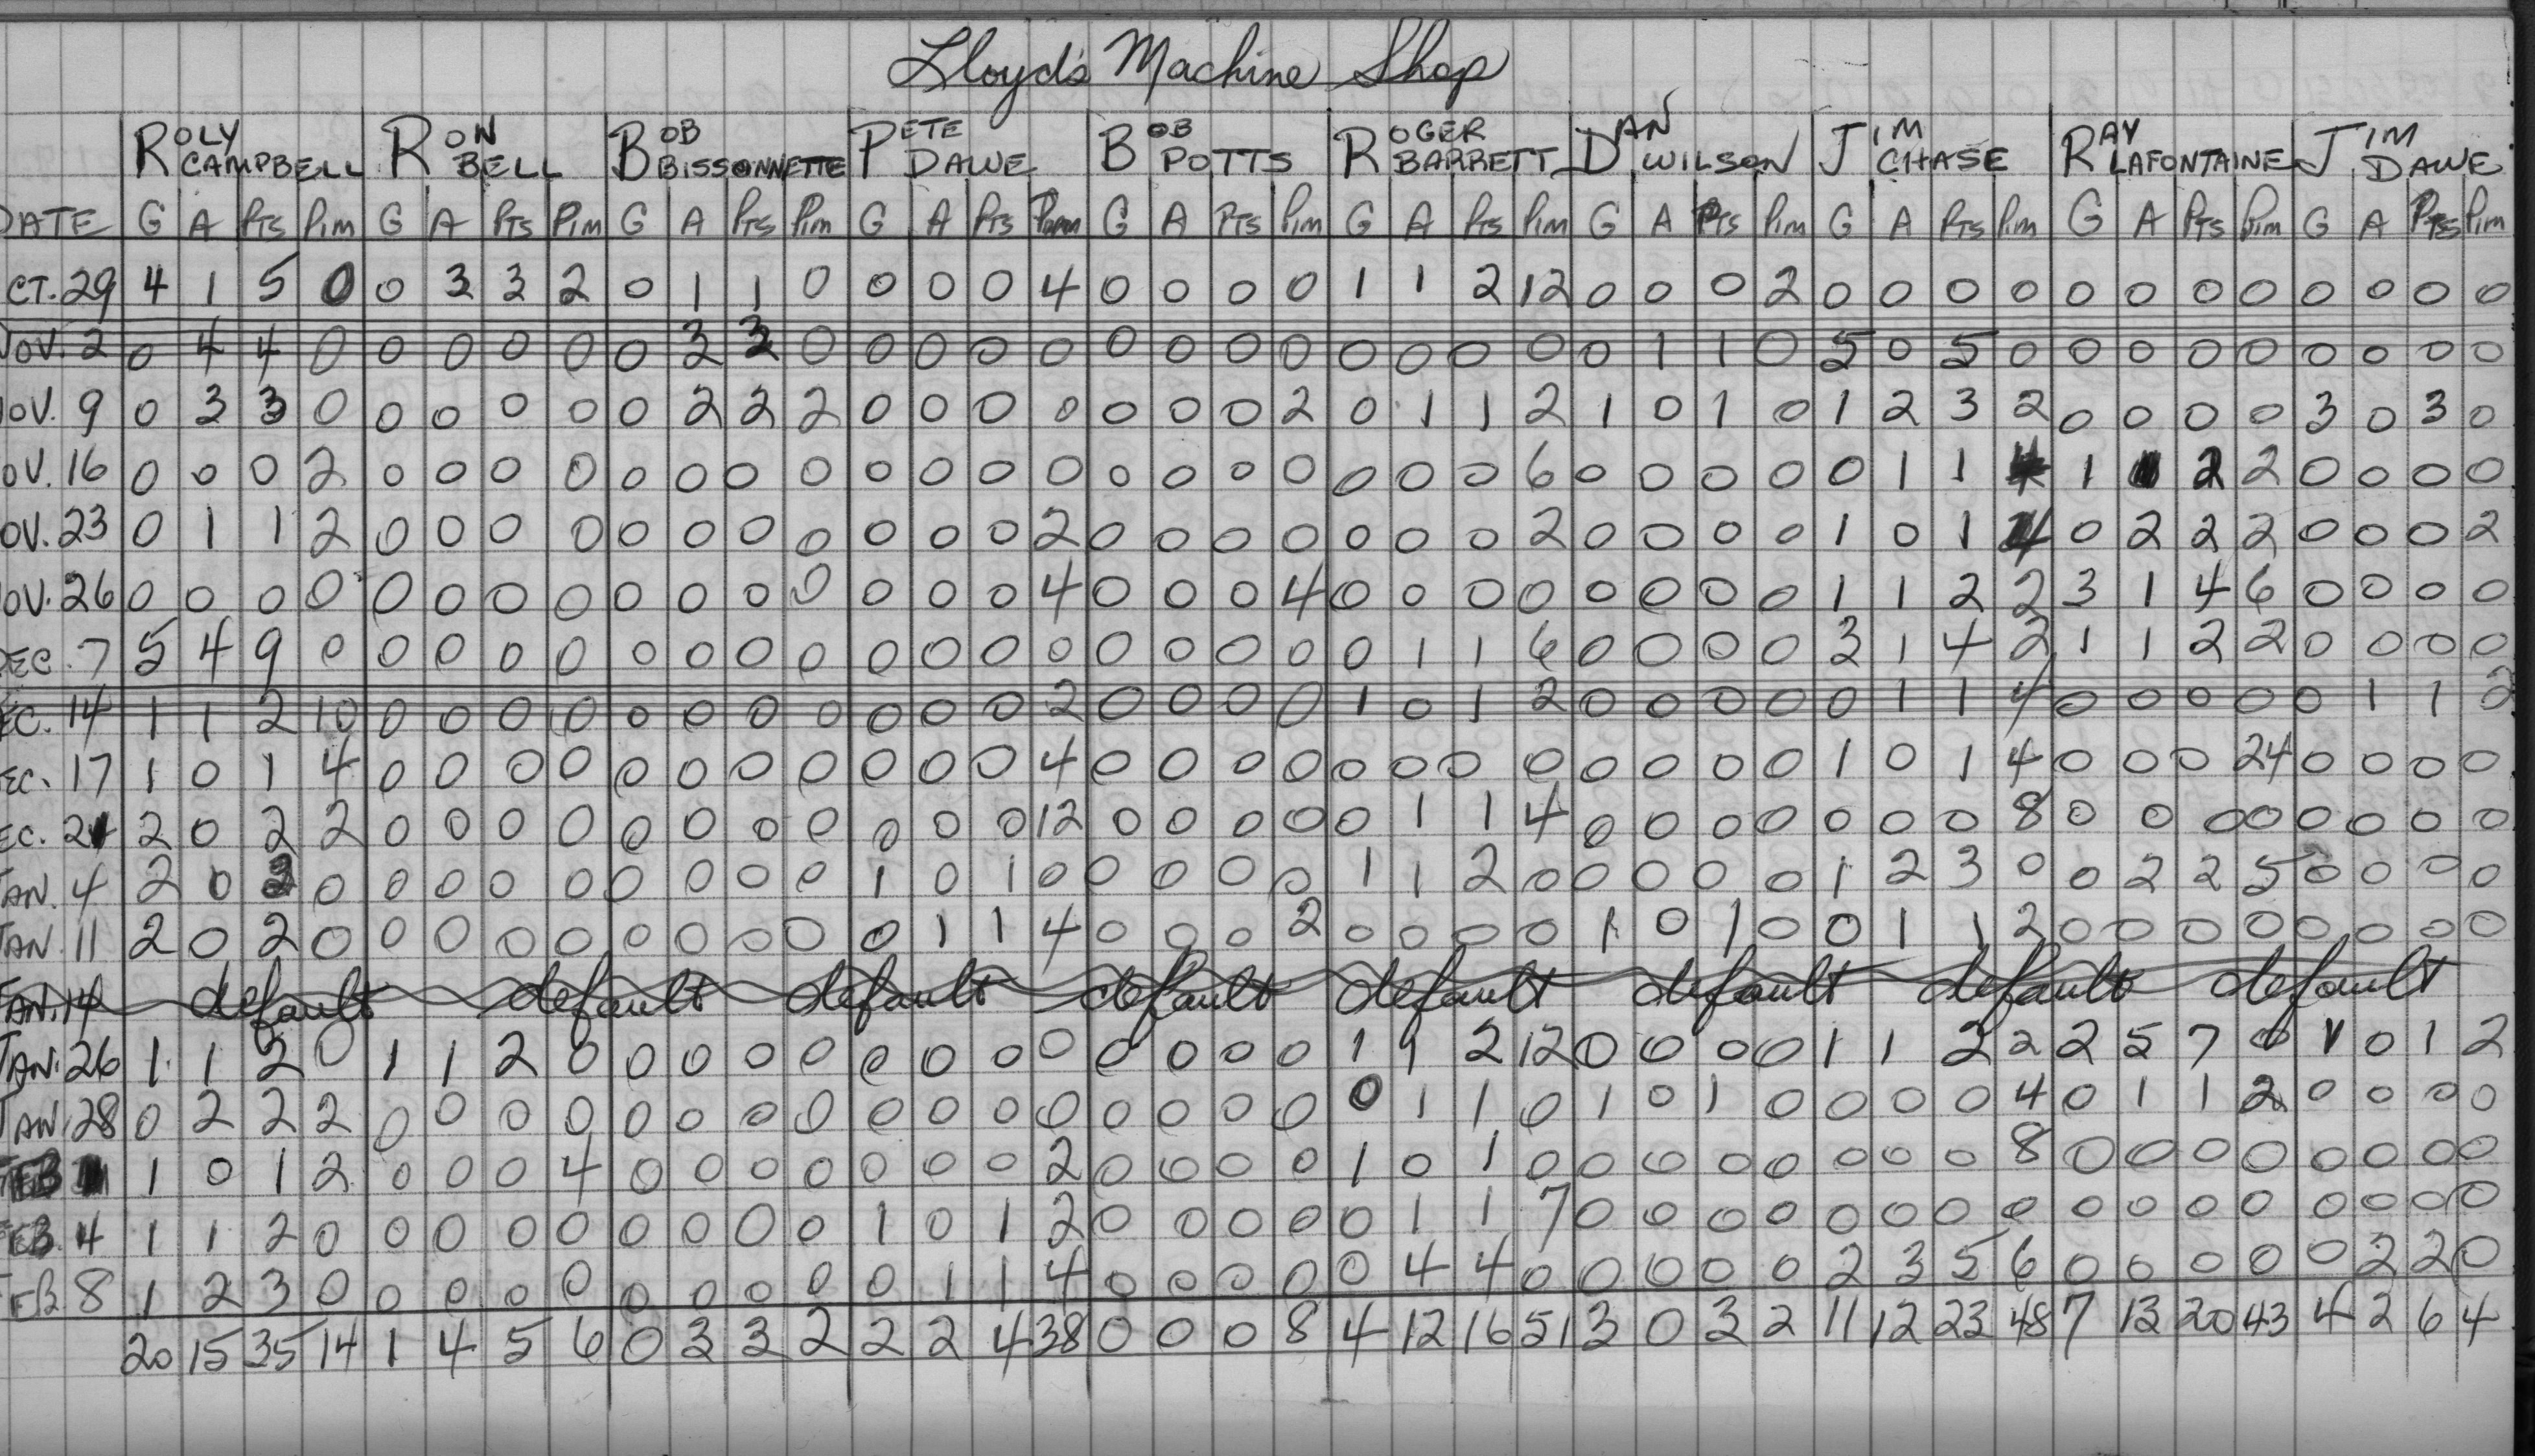 Lloyd's Machine Shop
ROLY CAMPBELL RON BELL BOB BISSONNETTE PETE DAWE BOB POTTS ROGER BARRETT DAN WILSON JIM CHASE RAY LAFONTAINE JIM DAWE
DATE G A Pts Pim G A Pts Pim G A Pts Pim G A Pts Pim G A Pts Pim G A Pts Pim G A Pts Pim G A Pts Pim G A Pts Pim G A Pts Pim
CT. 29 4 1 5 0 0 3 3 2 0 1 1 0 0 0 0 4 0 0 0 0 1 1 2 12 0 0 0 2 0 0 0 0 0 0 0 0 0 0 0 0
NOV. 2 0 4 4 0 0 0 0 0 0 3 3 0 0 0 0 0 0 0 0 0 0 0 0 0 0 1 1 0 5 0 5 0 0 0 0 0 0 0 0 0
OV. 9 0 3 3 0 0 0 0 0 0 2 2 2 0 0 0 0 0 0 0 2 0 1 1 2 1 0 1 0 1 2 3 2 0 0 0 0 3 0 3 0
OV. 16 0 0 0 2 0 0 0 0 0 0 0 0 0 0 0 0 0 0 0 0 0 0 0 6 0 0 0 0 0 1 1 4 1 1 2 2 0 0 0 0
OV. 23 0 1 1 2 0 0 0 0 0 0 0 0 0 0 0 2 0 0 0 0 0 0 0 2 0 0 0 0 1 0 1 4 0 2 2 2 0 0 0 2
OV. 26 0 0 0 0 0 0 0 0 0 0 0 0 0 0 0 4 0 0 0 4 0 0 0 0 0 0 0 0 1 1 2 2 3 1 4 6 0 0 0 0
DEC. 7 5 4 9 0 0 0 0 0 0 0 0 0 0 0 0 0 0 0 0 0 0 1 1 6 0 0 0 0 3 1 4 2 1 1 2 2 0 0 0 0
EC. 14 1 1 2 10 0 0 0 0 0 0 0 0 0 0 0 2 0 0 0 0 1 0 1 2 0 0 0 0 0 1 1 4 0 0 0 0 0 1 1 2
EC. 17 1 0 1 4 0 0 0 0 0 0 0 0 0 0 0 4 0 0 0 0 0 0 0 0 0 0 0 0 1 0 1 4 0 0 0 24 0 0 0 0
EC. 21 2 0 2 2 0 0 0 0 0 0 0 0 0 0 0 12 0 0 0 0 0 1 1 4 0 0 0 0 0 0 0 8 0 0 0 0 0 0 0 0
JAN. 4 2 0 2 0 0 0 0 0 0 0 0 0 1 0 1 0 0 0 0 0 1 1 2 0 0 0 0 0 1 2 3 0 0 2 2 5 0 0 0 0
JAN. 11 2 0 2 0 0 0 0 0 0 0 0 0 0 1 1 4 0 0 0 2 0 0 0 0 1 0 1 0 0 1 1 2 0 0 0 0 0 0 0 0
JAN. 14 default default default default default default default default
JAN. 26 1 1 2 0 1 1 2 0 0 0 0 0 0 0 0 0 0 0 0 0 1 1 2 12 0 0 0 0 1 1 2 2 2 5 7 0 1 0 1 2
JAN. 28 0 2 2 2 0 0 0 0 0 0 0 0 0 0 0 0 0 0 0 0 0 1 1 0 1 0 1 0 0 0 0 4 0 1 1 2 0 0 0 0
FEB 1 0 1 2 0 0 0 4 0 0 0 0 0 0 0 2 0 0 0 0 1 0 1 0 0 0 0 0 0 0 0 8 0 0 0 0 0 0 0 0
FEB. 4 1 1 2 0 0 0 0 0 0 0 0 0 1 0 1 2 0 0 0 0 0 1 1 7 0 0 0 0 0 0 0 0 0 0 0 0 0 0 0 0
FEB 8 1 2 3 0 0 0 0 0 0 0 0 0 0 1 1 4 0 0 0 0 0 4 4 0 0 0 0 0 2 3 5 6 0 0 0 0 0 2 2 0
20 15 35 14 1 4 5 6 0 3 3 2 2 2 4 38 0 0 0 8 4 12 16 51 3 0 3 2 11 12 23 48 7 13 20 43 4 2 6 4